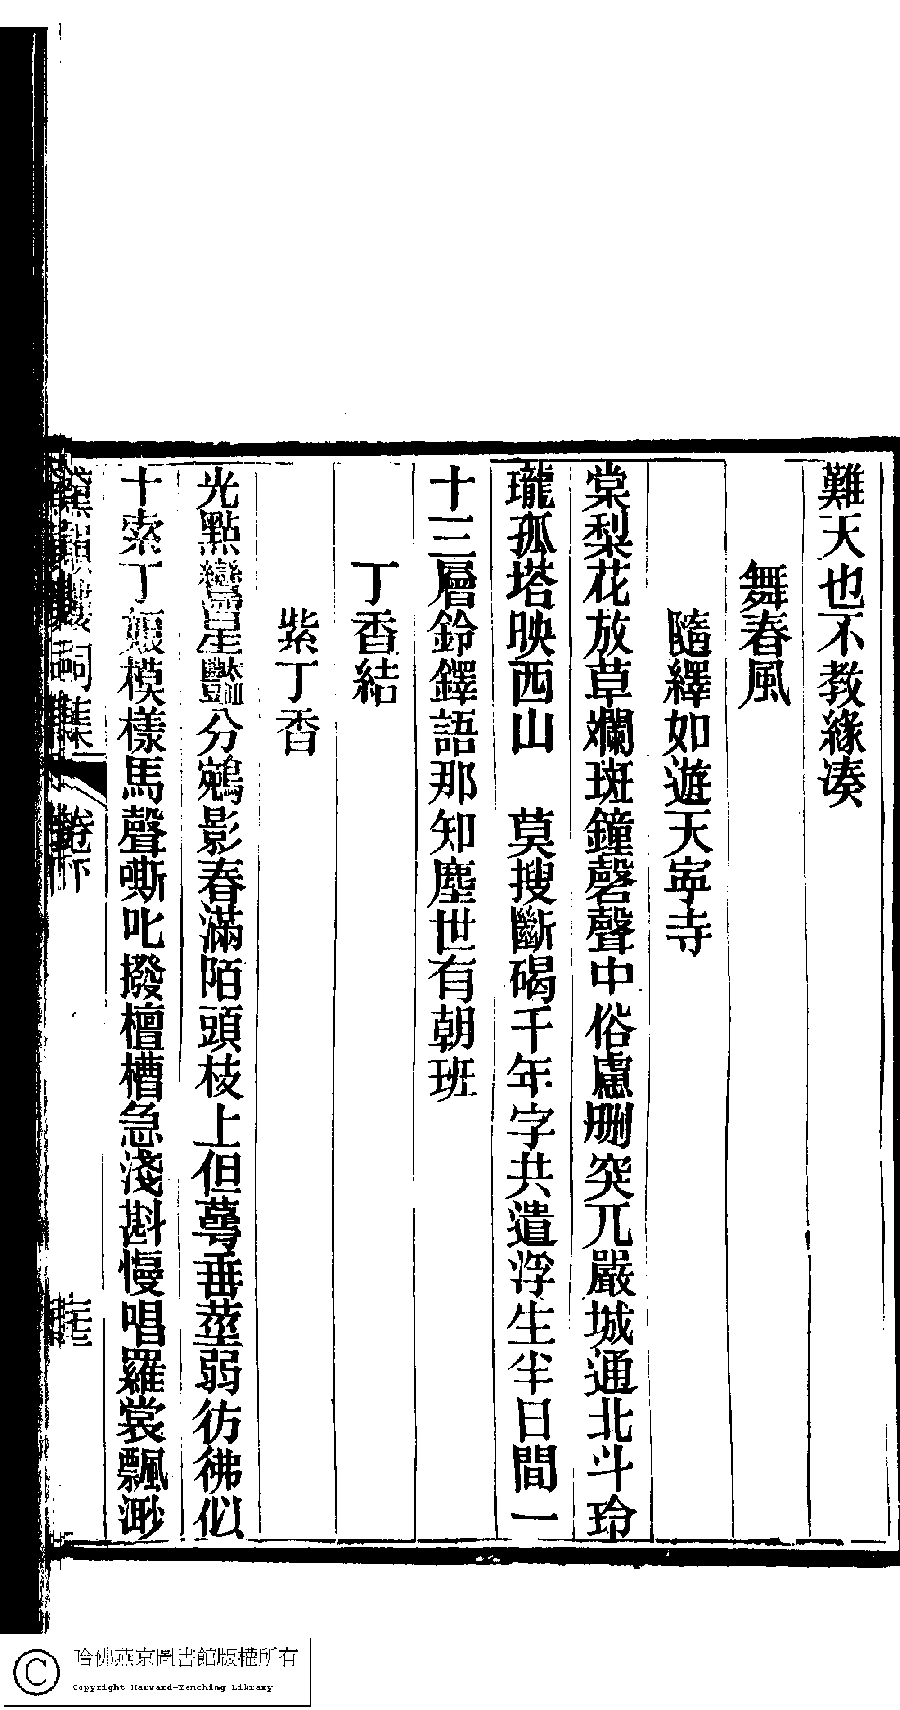 難天也不教緣湊
舞春風
隨繹如遊天寧寺
棠梨花放草斕斑鐘磬聲中俗慮刪突兀嚴城通北斗玲
瓏孤塔映西山　莫搜斷碣千年字共遣浮生半日間一
十三層鈴鐸語那知塵世有朝班
丁香結
紫丁香
光點鸞星豔分鵷影春滿陌頭枝上但蕚垂莖弱彷彿似
十索丁孃模樣馬聲嘶叱撥檀槽急淺斟慢唱羅裳飄渺
詞集
卷下
哈佛燕京圖書館版權所有
Copyright Harvard-Yenching Library